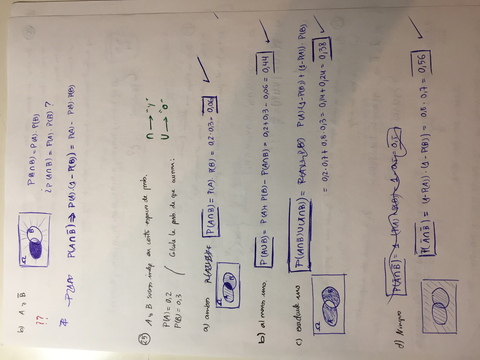 b) A y B̅
P(A∩B) = P(A)·P(B)
¿P(A∩B̅) = P(A)·P(B̅)?
P(A∩B̅) ⇒ P(A)·(1-P(B)) = P(A) - P(A)·P(B)
??
A y B sucesos indep. en cierto espacio de prob.
P(A) = 0,2
P(B) = 0,3
Calcula la prob. de que ocurran:
∩ → "y"
∪ → "o"
a) ambos P(A∩B) = P(A)·P(B) = 0,2·0,3 = 0,06
b) al menos uno. P(A∪B) = P(A)+P(B)-P(A∩B) = 0,2+0,3-0,06 = 0,44
c) P(A)·(1-P(B)) + (1-P(A))·P(B)
= 0,2·0,7 + 0,8·0,3 = 0,14+0,24 = 0,38
d) Ninguno
P(A̅∩B̅) = (1-P(A))·(1-P(B)) = 0,8·0,7 = 0,56